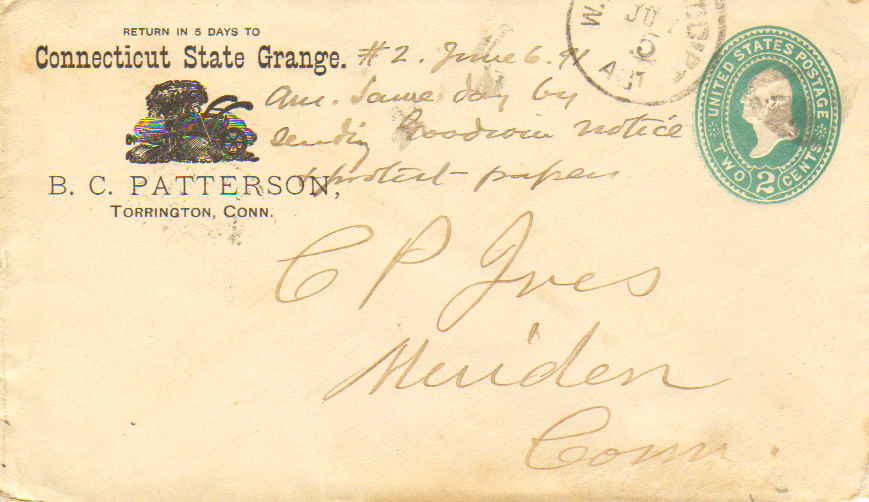 RETURN IN 5 DAYS TO
Connecticut State Grange.
B. C. PATTERSON,
TORRINGTON, CONN.
#2. June 6. 91
Ans. Same day by
sending Goodwin notice
protest papers
UNITED STATES POSTAGE
TWO 2 CENTS
C P Ives
Meriden
Conn.